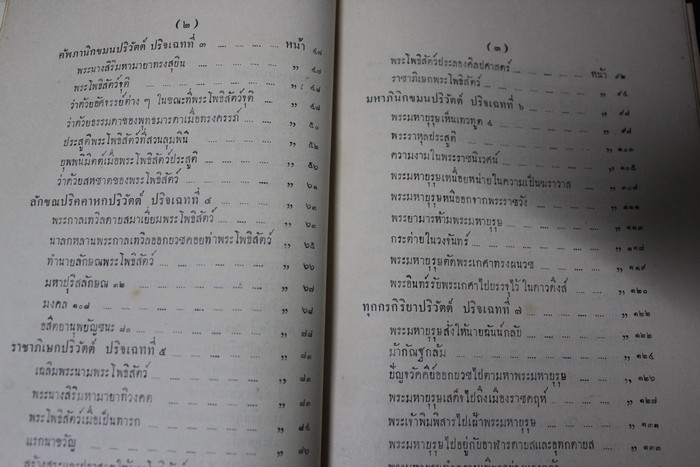 (๒)
คัพภานิกขมนปริวัตต์ ปริจเฉทที่ ๓ .... .... .... .... หน้า ๔๗
พระนางสิริมหามายาทรงสุบิน .... .... .... ,, ๔๗
พระโพธิสัตว์จุติ .... .... .... .... ,, ๔๘
ว่าด้วยอัศจรรย์ต่าง ๆ ในขณะที่พระโพธิสัตว์จุติ .... .... ,, ๔๘
ว่าด้วยธรรมดาของพุทธมารดาเมื่อทรงครรภ์ .... .... ,, ๕๐
ประสูติพระโพธิสัตว์ที่สวนลุมพินี .... .... .... ,, ๕๒
บุพพนิมิตต์เมื่อพระโพธิสัตว์ประสูติ .... .... .... ,, ๕๖
ว่าด้วยสหชาตของพระโพธิสัตว์ .... .... .... ,, ๖๑
ลักขณปริคคาหกปริวัตต์ ปริจเฉทที่ ๔ .... .... .... ,, ๖๓
พระกาลเทวิลดาบสมาเยี่ยมพระโพธิสัตว์ .... .... .... ,, ๖๓
นาลกหลานพระกาลเทวิลออกบวชคอยท่าพระโพธิสัตว์ .... .... ,, ๖๕
ทำนายลักษณพระโพธิสัตว์ .... .... .... .... ,, ๖๖
มหาปุริสลักษณ ๓๒ .... .... .... .... ,, ๖๗
มงคล ๑๐๘ .... .... .... .... ,, ๖๘
อสีตยานุพยัญชนะ ๘๐ .... .... .... .... ,, ๗๘
ราชาภิเษกปริวัตต์ ปริจเฉทที่ ๕ .... .... .... ,, ๘๓
เฉลิมพระนามพระโพธิสัตว์ .... .... .... .... ,, ๘๓
พระนางสิริมหามายาทิวงคต .... .... .... ....
พระโพธิสัตว์เมื่อเป็นทารก .... .... .... ....
แรกนาขวัญ .... .... .... ....
(๓)
พระโพธิสัตว์ประลองศิลปศาสตร์ .... .... .... หน้า ๙๒
ราชาภิเษกพระโพธิสัตว์ .... .... .... ,, ๙๕
มหาภินิกขมนปริวัตต์ ปริจเฉทที่ ๖ .... .... .... ,, ๙๘
พระมหาบุรุษเห็นเทวทูต ๔ .... .... .... ,, ๙๘
พระราหุลประสูติ .... .... .... ....
ความงามในพระราชนิเวศน์ .... .... .... ,, ๑๐๕
พระมหาบุรุษเหนื่อยหน่ายในความเป็นฆราวาส .... .... ,, ๑๐๘
พระมหาบุรุษหนีออกจากพระราชวัง .... .... ....
พระยามารห้ามพระมหาบุรุษ .... .... .... ,, ๑๑๓
กระต่ายในวงจันทร์ .... .... .... ,, ๑๑๗
พระมหาบุรุษตัดพระเกศาทรงผนวช .... .... ....
พระอินทร์รับพระเกศาไปบรรจุไว้ในดาวดึงส์ .... .... ,, ๑๒๐
ทุกกรกิริยาปริวัตต์ ปริจเฉทที่ ๗ .... .... .... ,, ๑๒๒
พระมหาบุรุษสั่งให้นายฉันน์กลับ .... .... .... ,, ๑๒๒
ม้ากัณฐกล้ม .... .... .... .... ,, ๑๒๔
ปัญจวัคคีย์ออกบวชไปตามหาพระมหาบุรุษ .... .... ,, ๑๒๖
พระมหาบุรุษเสด็จไปถึงเมืองราชคฤห์ .... .... .... ,, ๑๒๗
พระเจ้าพิมพิสารไปเฝ้าพระมหาบุรุษ .... .... ....
พระมหาบุรุษไปอยู่กับอาฬารดาบสและอุททกดาบส